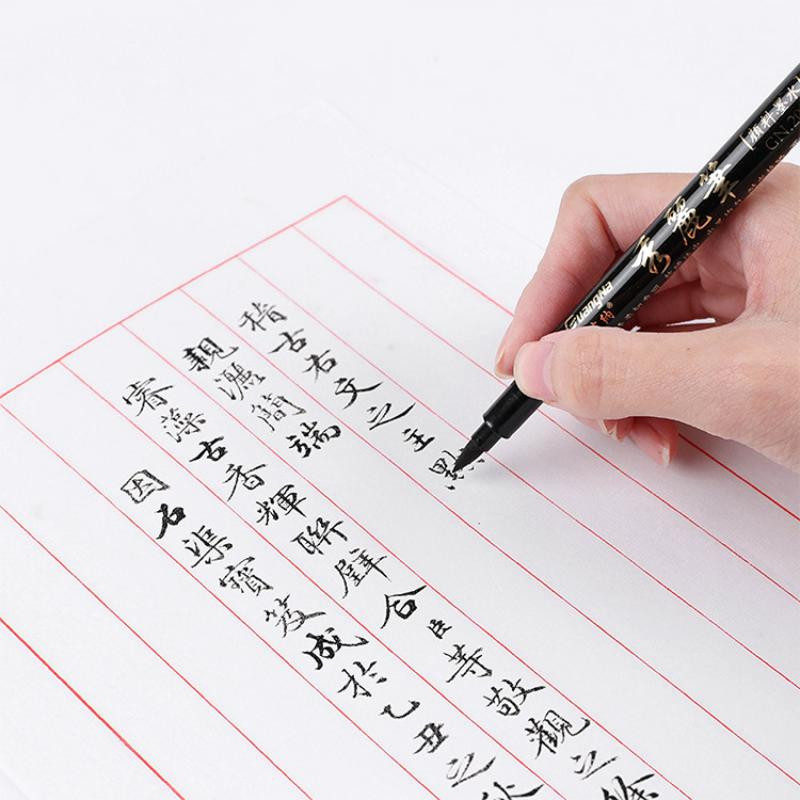 稽古右文之主
親灑簡端
睿藻古香輝聯璧合臣等敬觀之餘
因石渠寶笈成於乙丑之秋
Guangna
秀麗筆
顔料墨水